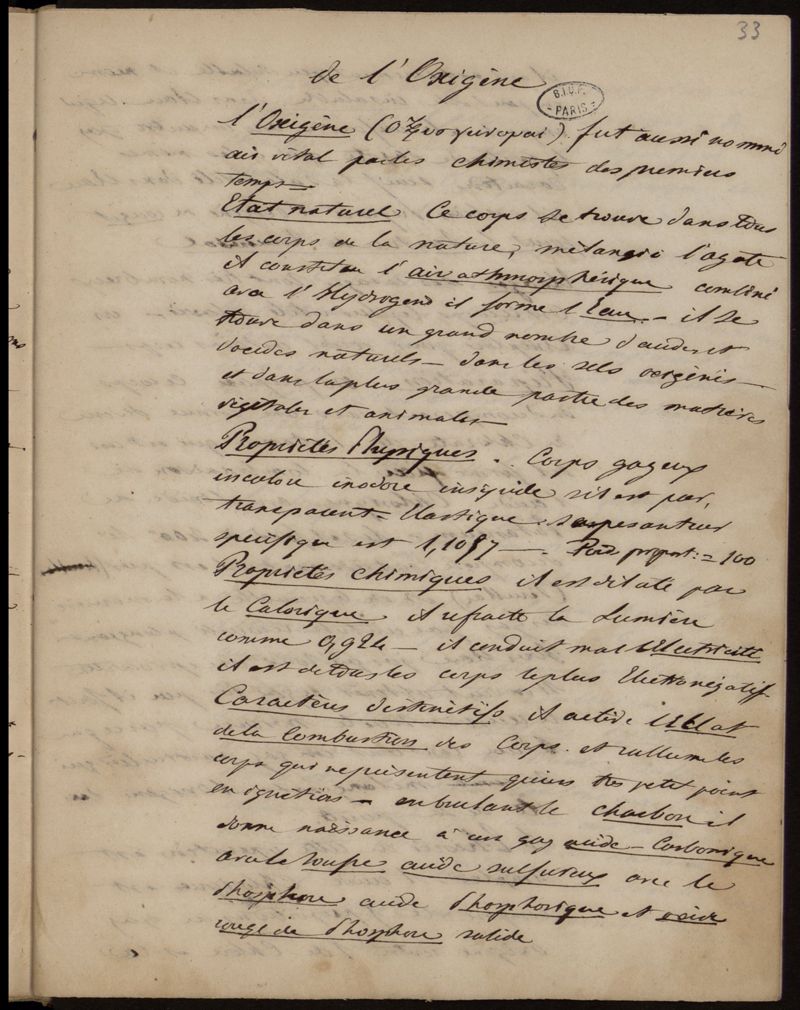 33
de l'Oxigène
B.I.U.P. PARIS
l'Oxigène (Οξυσ γεινομαι) fut aussi nommé
air vital par les chimistes des premiers
temps—
Etat naturel Ce corps se trouve dans tous
les corps de la nature, mélangé à l'azote
il constitue l'air athmosphérique combiné
avec l'Hydrogène il forme l'Eau — il se
trouve dans un grand nombre d'acides et
d'oxides naturels — dans les sels oxigénés —
et dans la plus grande partie des matières
végétales et animales —
Propriétés Physiques . . Corps gazeux
incolore inodore insipide s'il est pur,
transparent — Elastique . sa pesanteur
spécifique est 1,1057 — . Poids proport: = 100
Propriétés chimiques il est dilaté par
le Calorique il réfracte la Lumière
comme 0,924 — il conduit mal l'Electricité
il est de tous les corps le plus Electronégatif
Caractères distinctifs il active l'Eclat
de la Combustion des Corps . et rallume les
corps qui ne présentent qu'un très petit point
en ignition — en brulant le charbon il
donne naissance à un gaz acide — Carbonique
avec le soufre acide sulfureux avec le
Phosphore acide Phosphorique et oxide
rouge de Phosphore solide